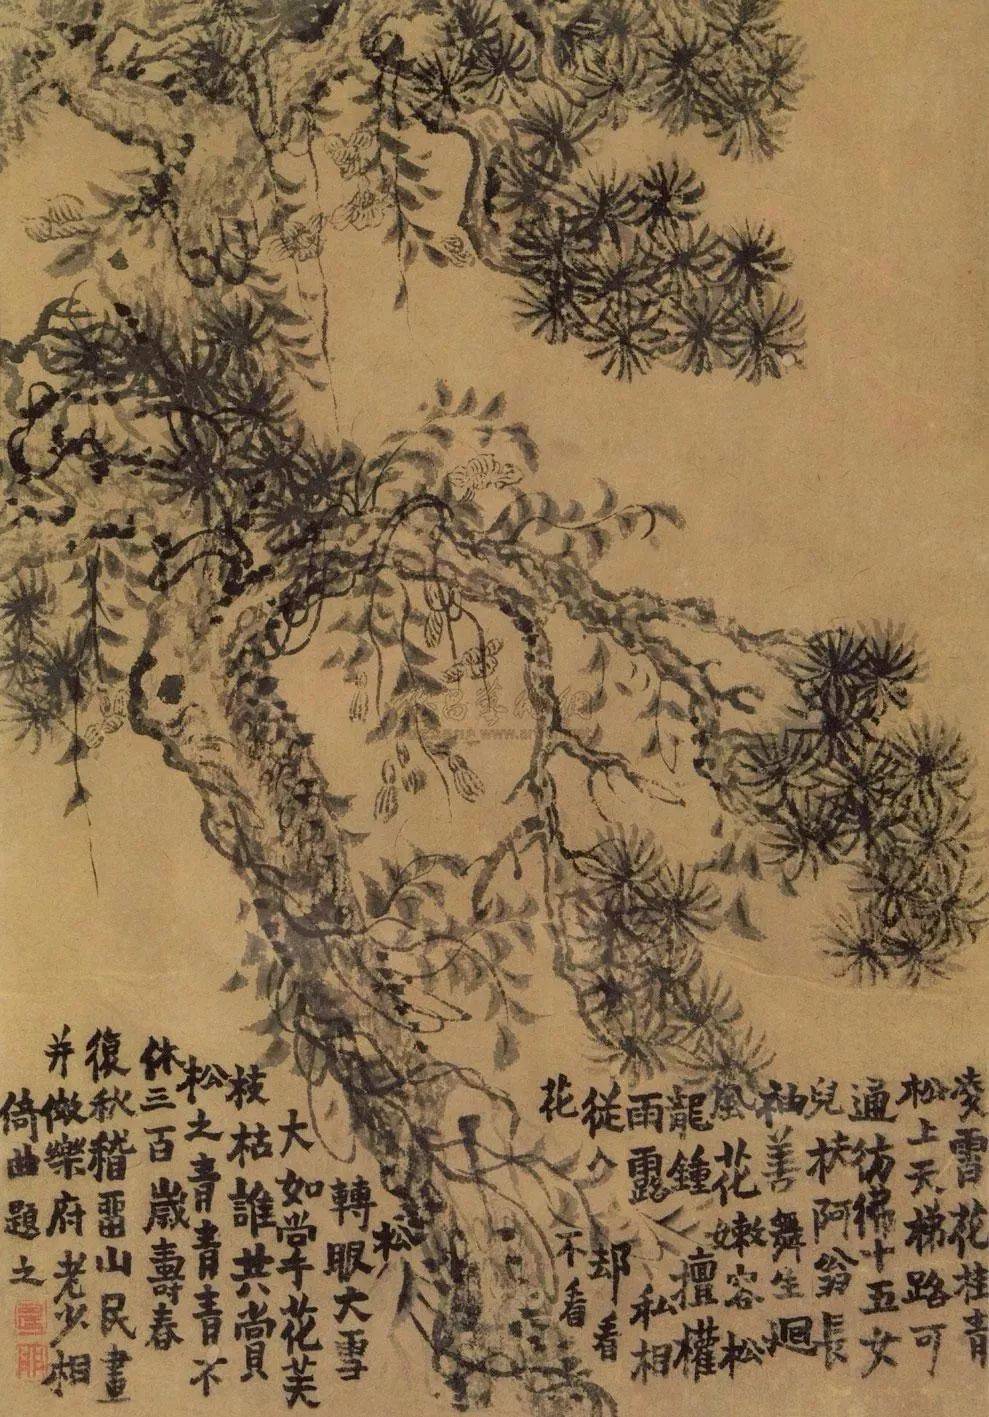 凌霄花挂青
松上天梯路可
通彷彿十五女
兒扶阿翁長
袖善舞生迴
風花嫩容松
龍鍾擅權
雨露私相
從人却看
花不看
松
轉眼大雪
大如掌花萎
枝枯誰共賞
松之青青青不
休三百歲壽春
復秋稽畱山民畫
并倣樂府老少相
倚曲題之